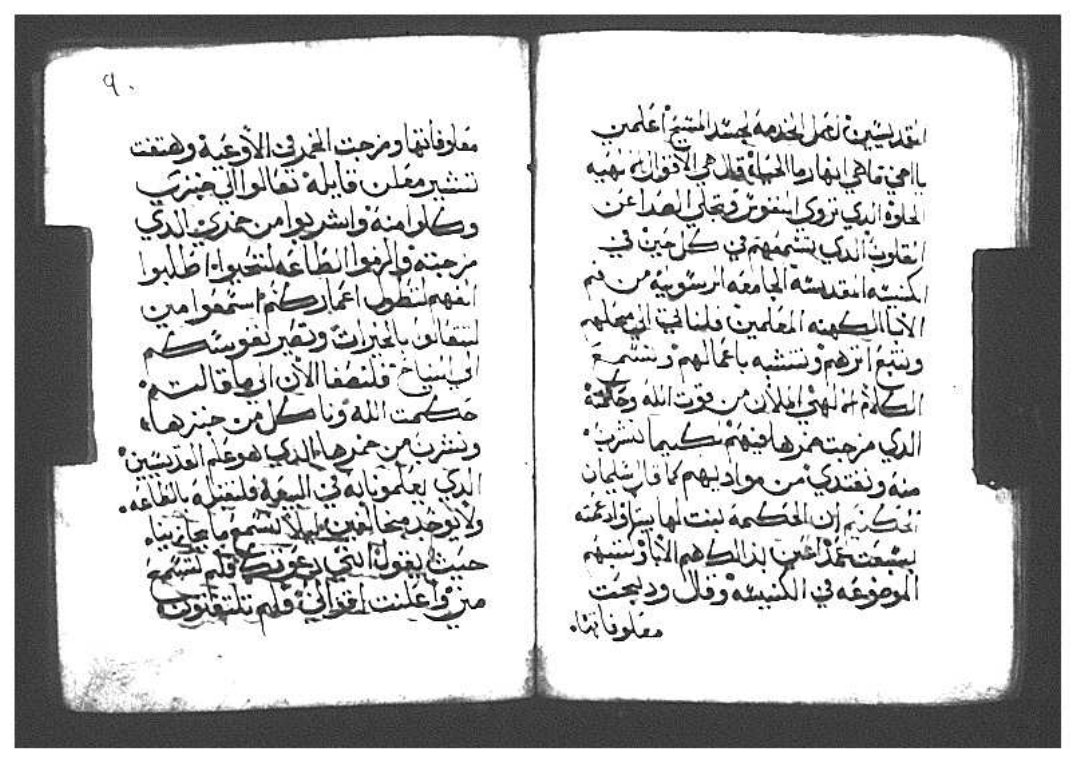 القديسين لعمل الخدمه لجسد المسيح اعلمني
يااخي ماهي انهار ما الحياة قال هي الاقوال الالهيه
الحلوة الذي تروي النفوس وتجلي الصدا عن
القلوب الذي يسمعهم في كل حين في
الكنيسه المقدسة الجامعه الرسولية من فم
الابا الكهنه المعلمين فلناتي الي محلهم
ونتبع اثرهم ونتشبه باعمالهم ونستمع
الكلام الالهي الملان من قوت الله وحكمته
الذي مزجت خمرها فيهم لكيما نشرب
منه ونغتدي من مواديهم كما قال سليمان
الحكيم ان الحكمه بنت لها بيتا وادعمته
بسبعت عمد اعني بذالك هم الابا وكتبهم
الموضوعه في الكنيسه وقال ودبحت
معلوفاتها
٩٠
معلوفاتها ومزجت الخمر في الأوعية وهتفت
تنشير معلن قايلة تعالوا الي خبزي
وكلوا منه واشربوا من خمري الذي
مزجته والزموا الطاعه لتحيوا اطلبوا
الفهم لتطول اعماركم استمعوا مني
لتتقالوا بالخيرات وتصير نفوسكم
الي النياح فلنصغا الان الي ما قالت
حكمت الله وناكل من خبزها
ونشرب من خمرها الذي هو علم القديسين
الذي يعلمونا به في البيعة فلنقبله بالطاعه
ولا نوجد مخالفين ليلا نسمع ما جا
حيث يقول انني دعوتكم فلم تسمع
مني واعلنت اقوالي فلم تلتفتون